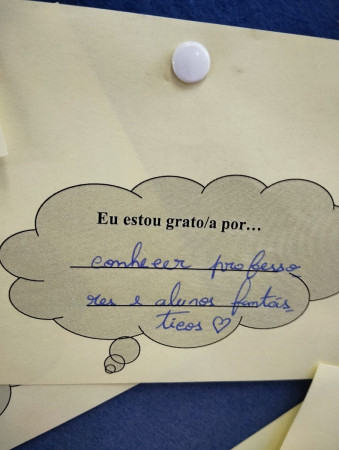 Eu estou grato/a por...
conhecer professo
res e alunos fantás
ticos ♡